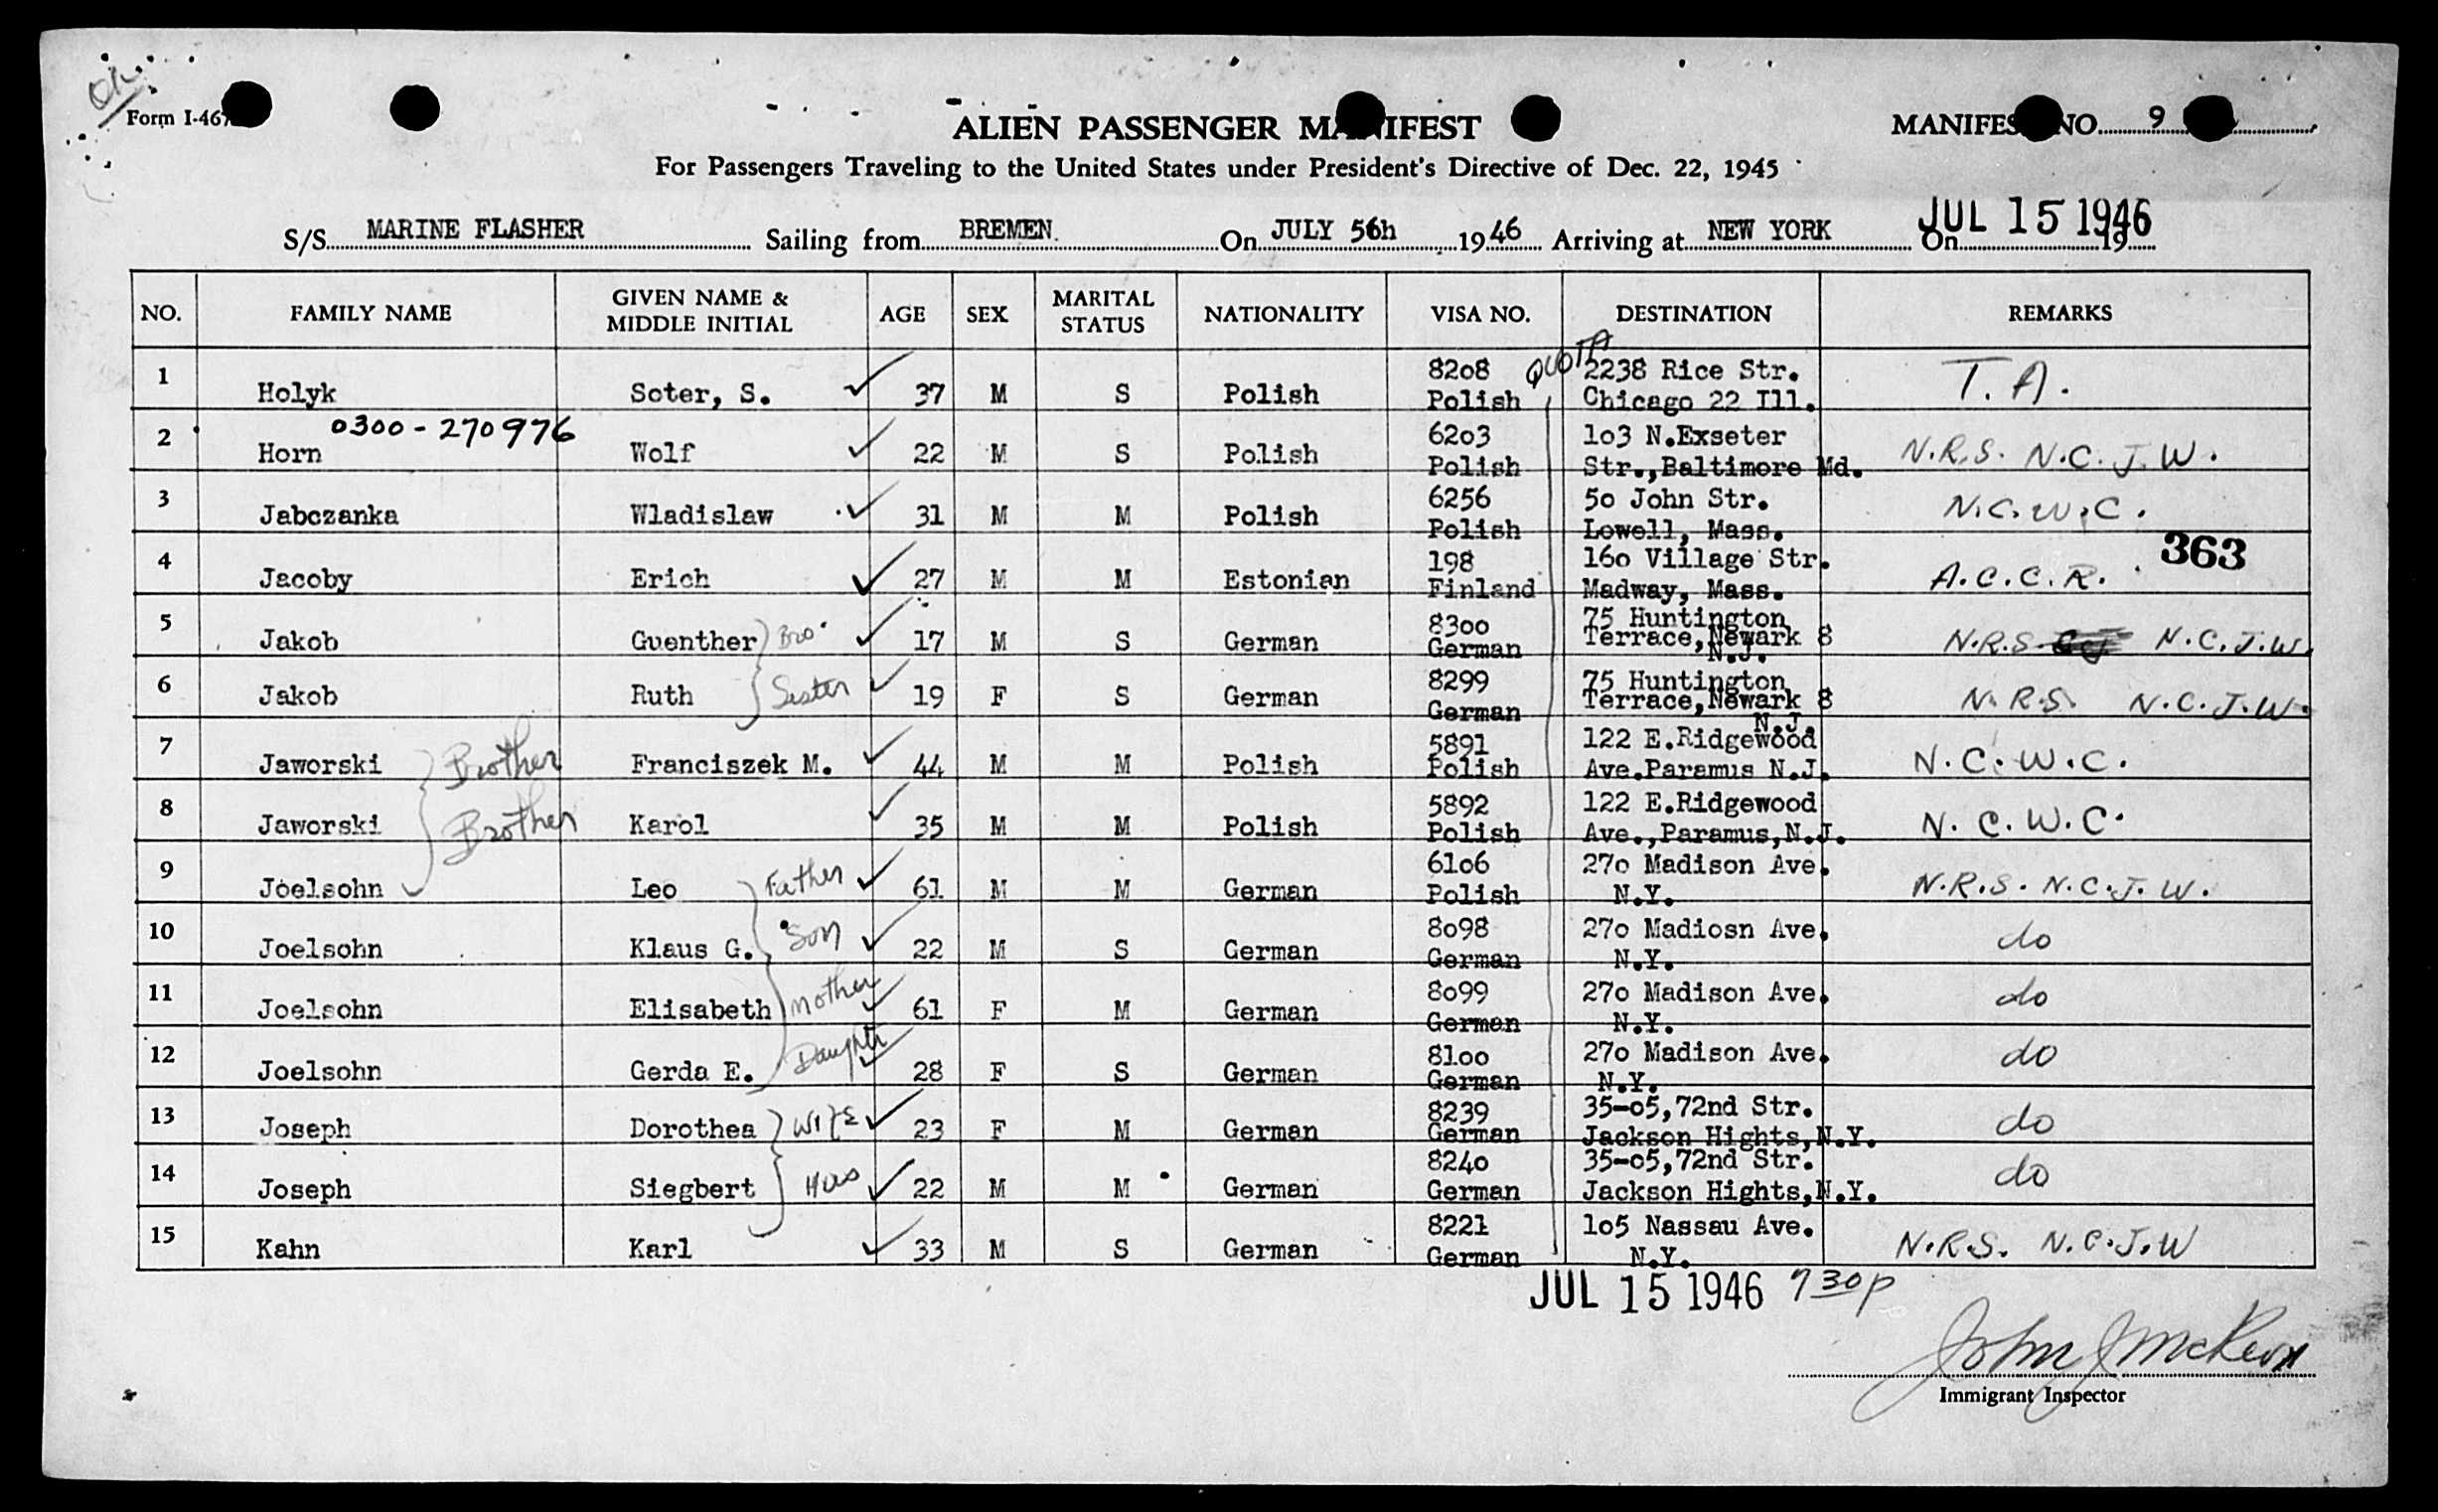 OK
Form I-467
ALIEN PASSENGER MANIFEST
MANIFEST NO. 9
For Passengers Traveling to the United States under President's Directive of Dec. 22, 1945
S/S MARINE FLASHER Sailing from BREMEN. On JULY 56h 1946 Arriving at NEW YORK On JUL 15 1946 19
NO. FAMILY NAME GIVEN NAME & MIDDLE INITIAL AGE SEX MARITAL STATUS NATIONALITY VISA NO. DESTINATION REMARKS
QUOTA
1 Holyk Soter, S. 37 M S Polish 8208 Polish 2238 Rice Str. Chicago 22 Ill. T. A.
0300-270976
2 Horn Wolf 22 M S Polish 6203 Polish 103 N.Exseter Str.,Baltimore Md. N.R.S. N.C.J.W.
3 Jabczanka Wladislaw 31 M M Polish 6256 Polish 50 John Str. Lowell, Mass. N.C.W.C.
363
4 Jacoby Erich 27 M M Estonian 198 Finland 160 Village Str. Madway, Mass. A.C.C.R.
5 Jakob Guenther Bro. 17 M S German 8300 German 75 Huntington Terrace,Newark 8 N.J. N.R.S. N.C.J.W.
6 Jakob Ruth Sister 19 F S German 8299 German 75 Huntington Terrace,Newark 8 N.J. N.R.S. N.C.J.W.
7 Jaworski Brother Franciszek M. 44 M M Polish 5891 Polish 122 E.Ridgewood Ave.Paramus N.J. N.C.W.C.
8 Jaworski Brother Karol 35 M M Polish 5892 Polish 122 E.Ridgewood Ave.,Paramus,N.J. N.C.W.C.
9 Joelsohn Leo Father 61 M M German 6106 Polish 270 Madison Ave. N.Y. N.R.S. N.C.J.W.
10 Joelsohn Klaus G. Son 22 M S German 8098 German 270 Madiosn Ave. N.Y. do
11 Joelsohn Elisabeth Mother 61 F M German 8099 German 270 Madison Ave. N.Y. do
12 Joelsohn Gerda E. Daughtr 28 F S German 8100 German 270 Madison Ave. N.Y. do
13 Joseph Dorothea WIFE 23 F M German 8239 German 35-05,72nd Str. Jackson Hights,N.Y. do
14 Joseph Siegbert Hus 22 M M German 8240 German 35-05,72nd Str. Jackson Hights,N.Y. do
15 Kahn Karl 33 M S German 8221 German 105 Nassau Ave. N.Y. N.R.S. N.C.J.W
JUL 15 1946 730p
John J McKeon
Immigrant Inspector